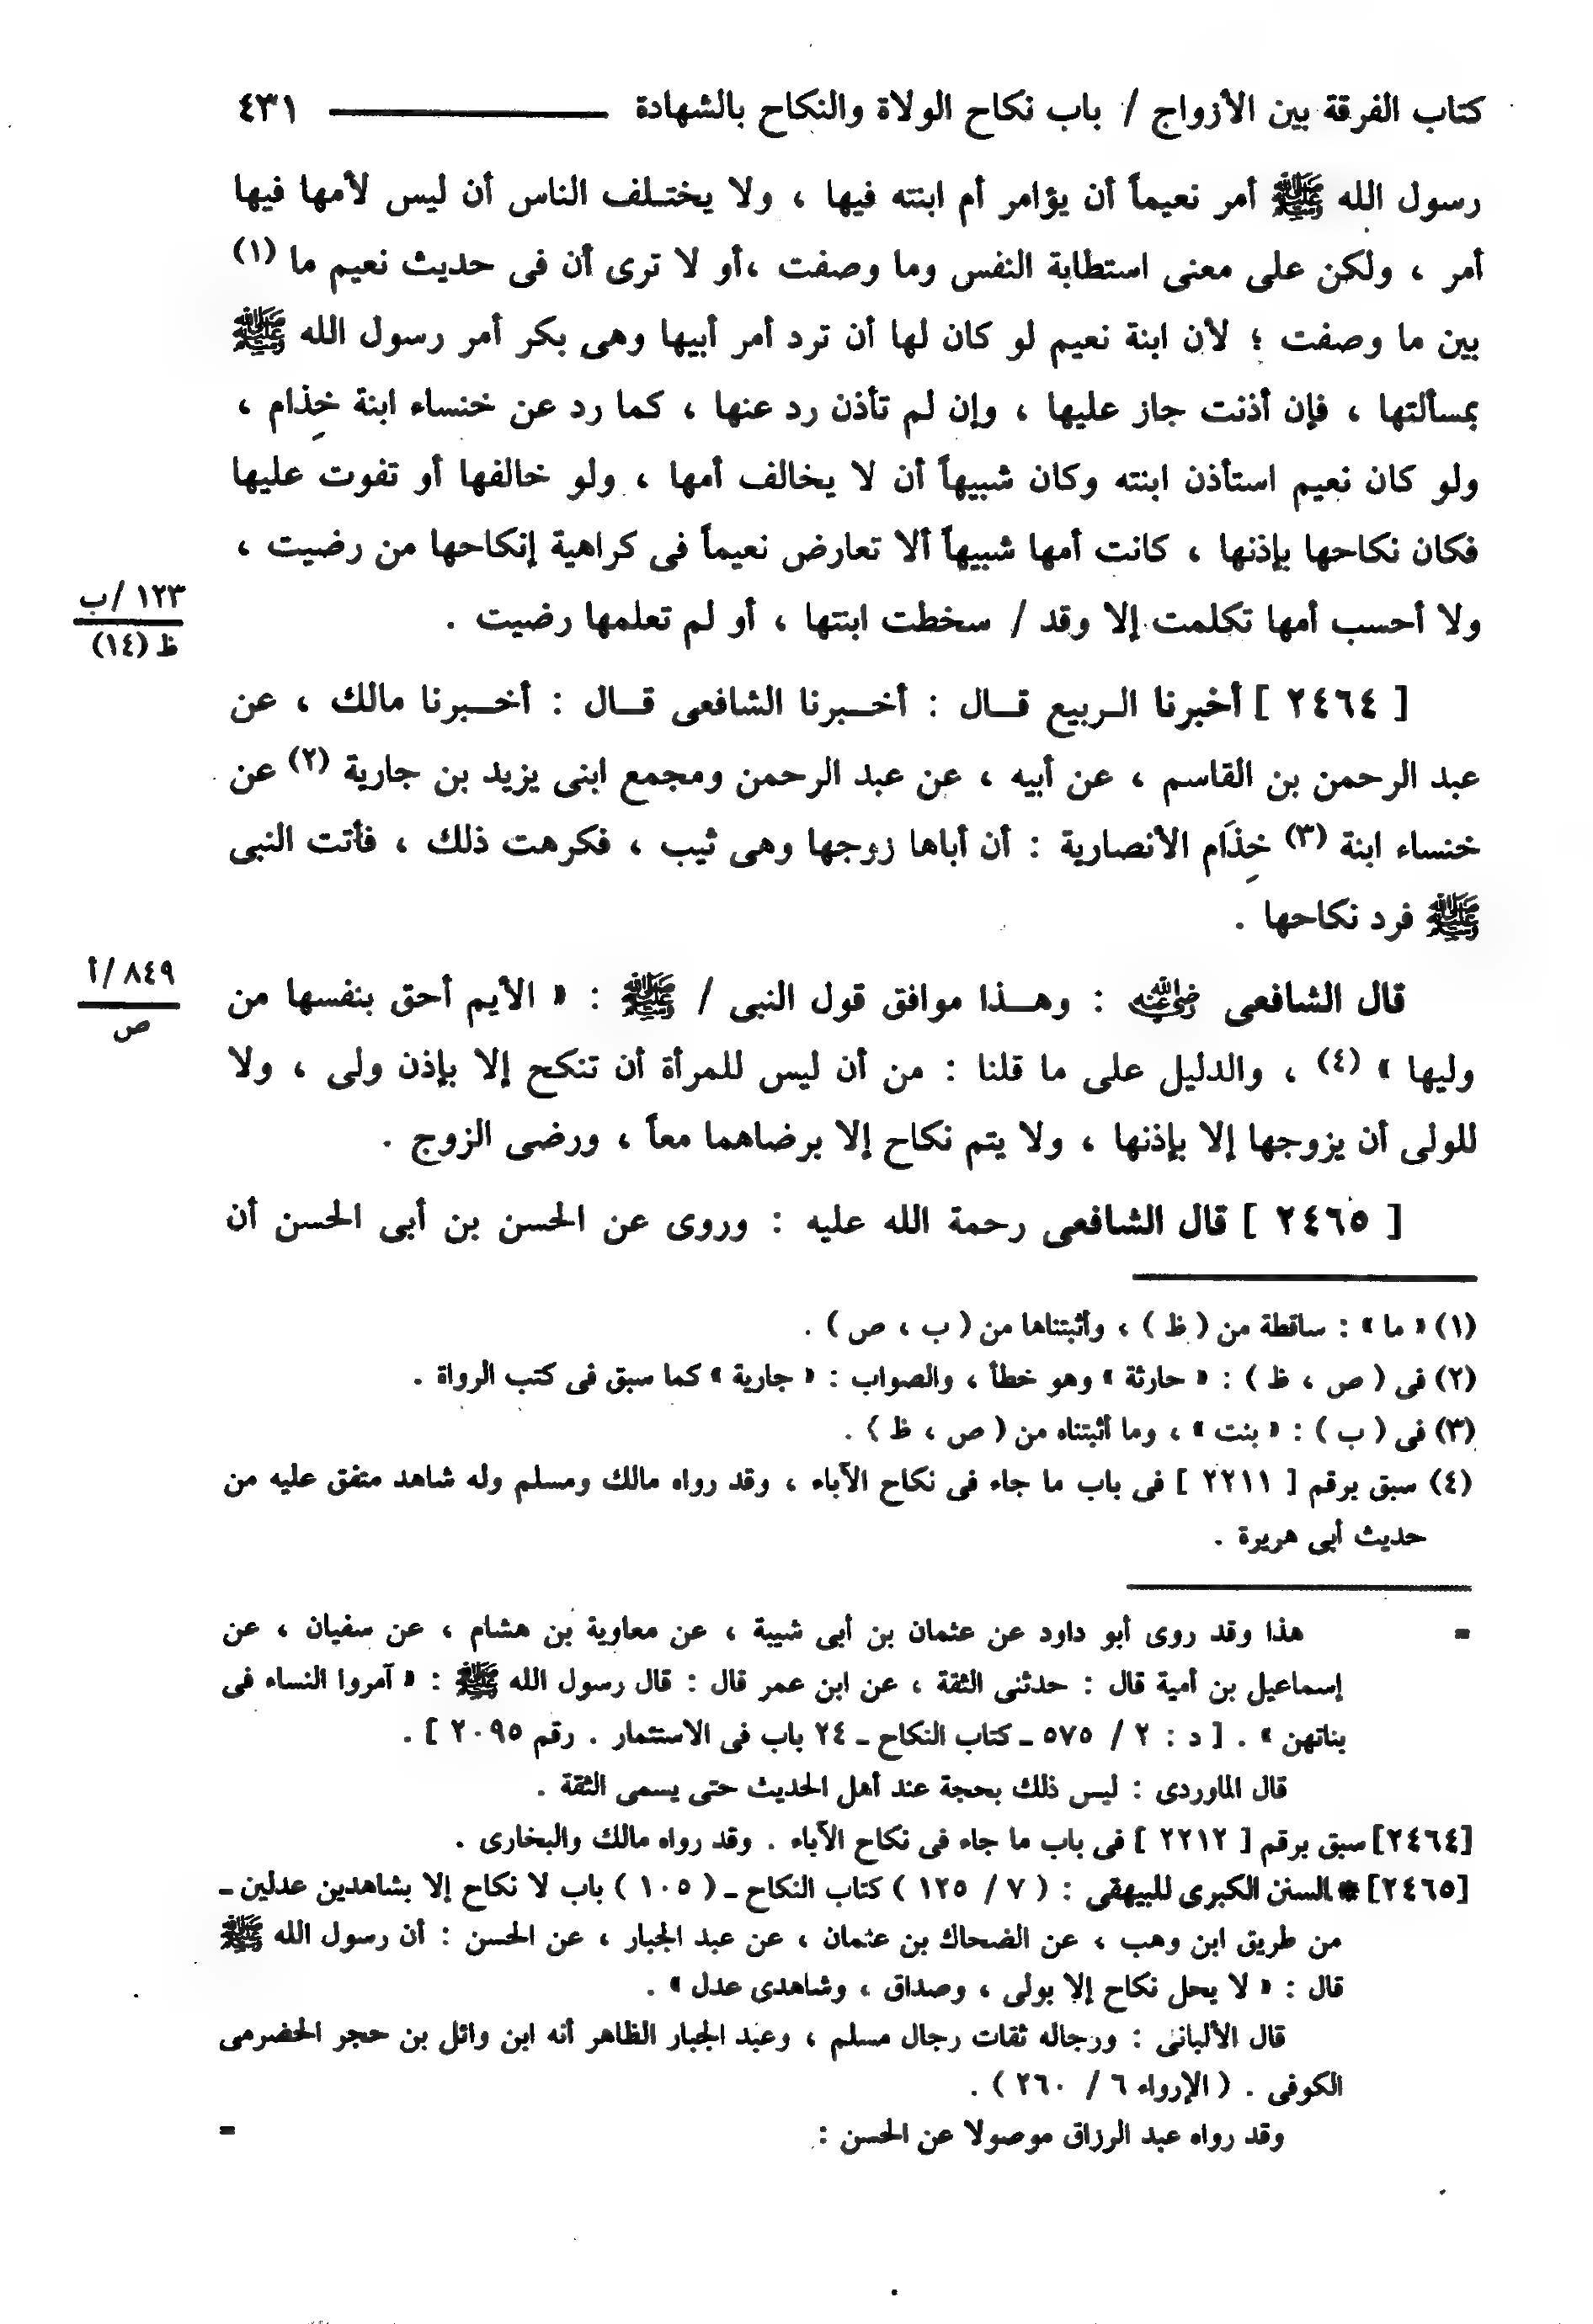 كتاب الفرقة بين الأزواج / باب نكاح الولاة والنكاح بالشهادة ٤٣١
رسول الله ﷺ أمر نعيماً أن يؤامر أم ابنته فيها ، ولا يختلف الناس أن ليس لأمها فيها
أمر ، ولكن على معنى استطابة النفس وما وصفت ،أو لا ترى أن فى حديث نعيم ما (١)
بين ما وصفت ؛ لأن ابنة نعيم لو كان لها أن ترد أمر أبيها وهى بكر أمر رسول الله ﷺ
بمسألتها ، فإن أذنت جاز عليها ، وإن لم تأذن رد عنها ، كما رد عن خنساء ابنة خِذام ،
ولو كان نعيم استأذن ابنته وكان شبيهاً أن لا يخالف أمها ، ولو خالفها أو تفوت عليها
فكان نكاحها بإذنها ، كانت أمها شبيهاً ألا تعارض نعيماً فى كراهية إنكاحها من رضيت ،
١٢٣ /ب
ظ (١٤)
ولا أحسب أمها تكلمت إلا وقد / سخطت ابنتها ، أو لم تعلمها رضيت .
[ ٢٤٦٤ ] أخبرنا الربيع قال : أخبرنا الشافعى قال : أخبرنا مالك ، عن
عبد الرحمن بن القاسم ، عن أبيه ، عن عبد الرحمن ومجمع ابنى يزيد بن جارية (٢) عن
خنساء ابنة (٣) خِذَام الأنصارية : أن أباها زوجها وهى ثيب ، فكرهت ذلك ، فأتت النبى
ﷺ فرد نكاحها .
٨٤٩ /أ
ص
قال الشافعى رضي الله عنه : وهذا موافق قول النبى / ﷺ : « الأيم أحق بنفسها من
وليها » (٤) ، والدليل على ما قلنا : من أن ليس للمرأة أن تنكح إلا بإذن ولى ، ولا
للولى أن يزوجها إلا بإذنها ، ولا يتم نكاح إلا برضاهما معاً ، ورضى الزوج .
[ ٢٤٦٥ ] قال الشافعى رحمة الله عليه : وروى عن الحسن بن أبى الحسن أن
(١) « ما » : ساقطة من ( ظ ) ، وأثبتناها من ( ب ، ص ) .
(٢) فى ( ص ، ظ ) : « حارثة » وهو خطأ ، والصواب : « جارية » كما سبق فى كتب الرواة .
(٣) فى ( ب ) : « بنت » ، وما أثبتناه من ( ص ، ظ ) .
(٤) سبق برقم [ ٢٢١١ ] فى باب ما جاء فى نكاح الآباء ، وقد رواه مالك ومسلم وله شاهد متفق عليه من
حديث أبى هريرة .
= هذا وقد روى أبو داود عن عثمان بن أبى شيبة ، عن معاوية بن هشام ، عن سفيان ، عن
إسماعيل بن أمية قال : حدثنى الثقة ، عن ابن عمر قال : قال رسول الله ﷺ : « آمروا النساء فى
بناتهن » . [ د : ٢ / ٥٧٥ ـ كتاب النكاح ـ ٢٤ باب فى الاستثمار . رقم ٢٠٩٥ ] .
قال الماوردى : ليس ذلك بحجة عند أهل الحديث حتى يسمى الثقة .
[٢٤٦٤] سبق برقم [ ٢٢١٢ ] فى باب ما جاء فى نكاح الآباء . وقد رواه مالك والبخارى .
[٢٤٦٥] * السنن الكبرى للبيهقى : ( ٧ / ١٢٥ ) كتاب النكاح ـ ( ١٠٥ ) باب لا نكاح إلا بشاهدين عدلين ـ
من طريق ابن وهب ، عن الضحاك بن عثمان ، عن عبد الجبار ، عن الحسن : أن رسول الله ﷺ
قال : « لا يحل نكاح إلا بولى ، وصداق ، وشاهدى عدل » .
قال الألبانى : ورجاله ثقات رجال مسلم ، وعبد الجبار الظاهر أنه ابن وائل بن حجر الحضرمى
الكوفى . ( الإرواء ٦ / ٢٦٠ ) .
وقد رواه عبد الرزاق موصولا عن الحسن : =